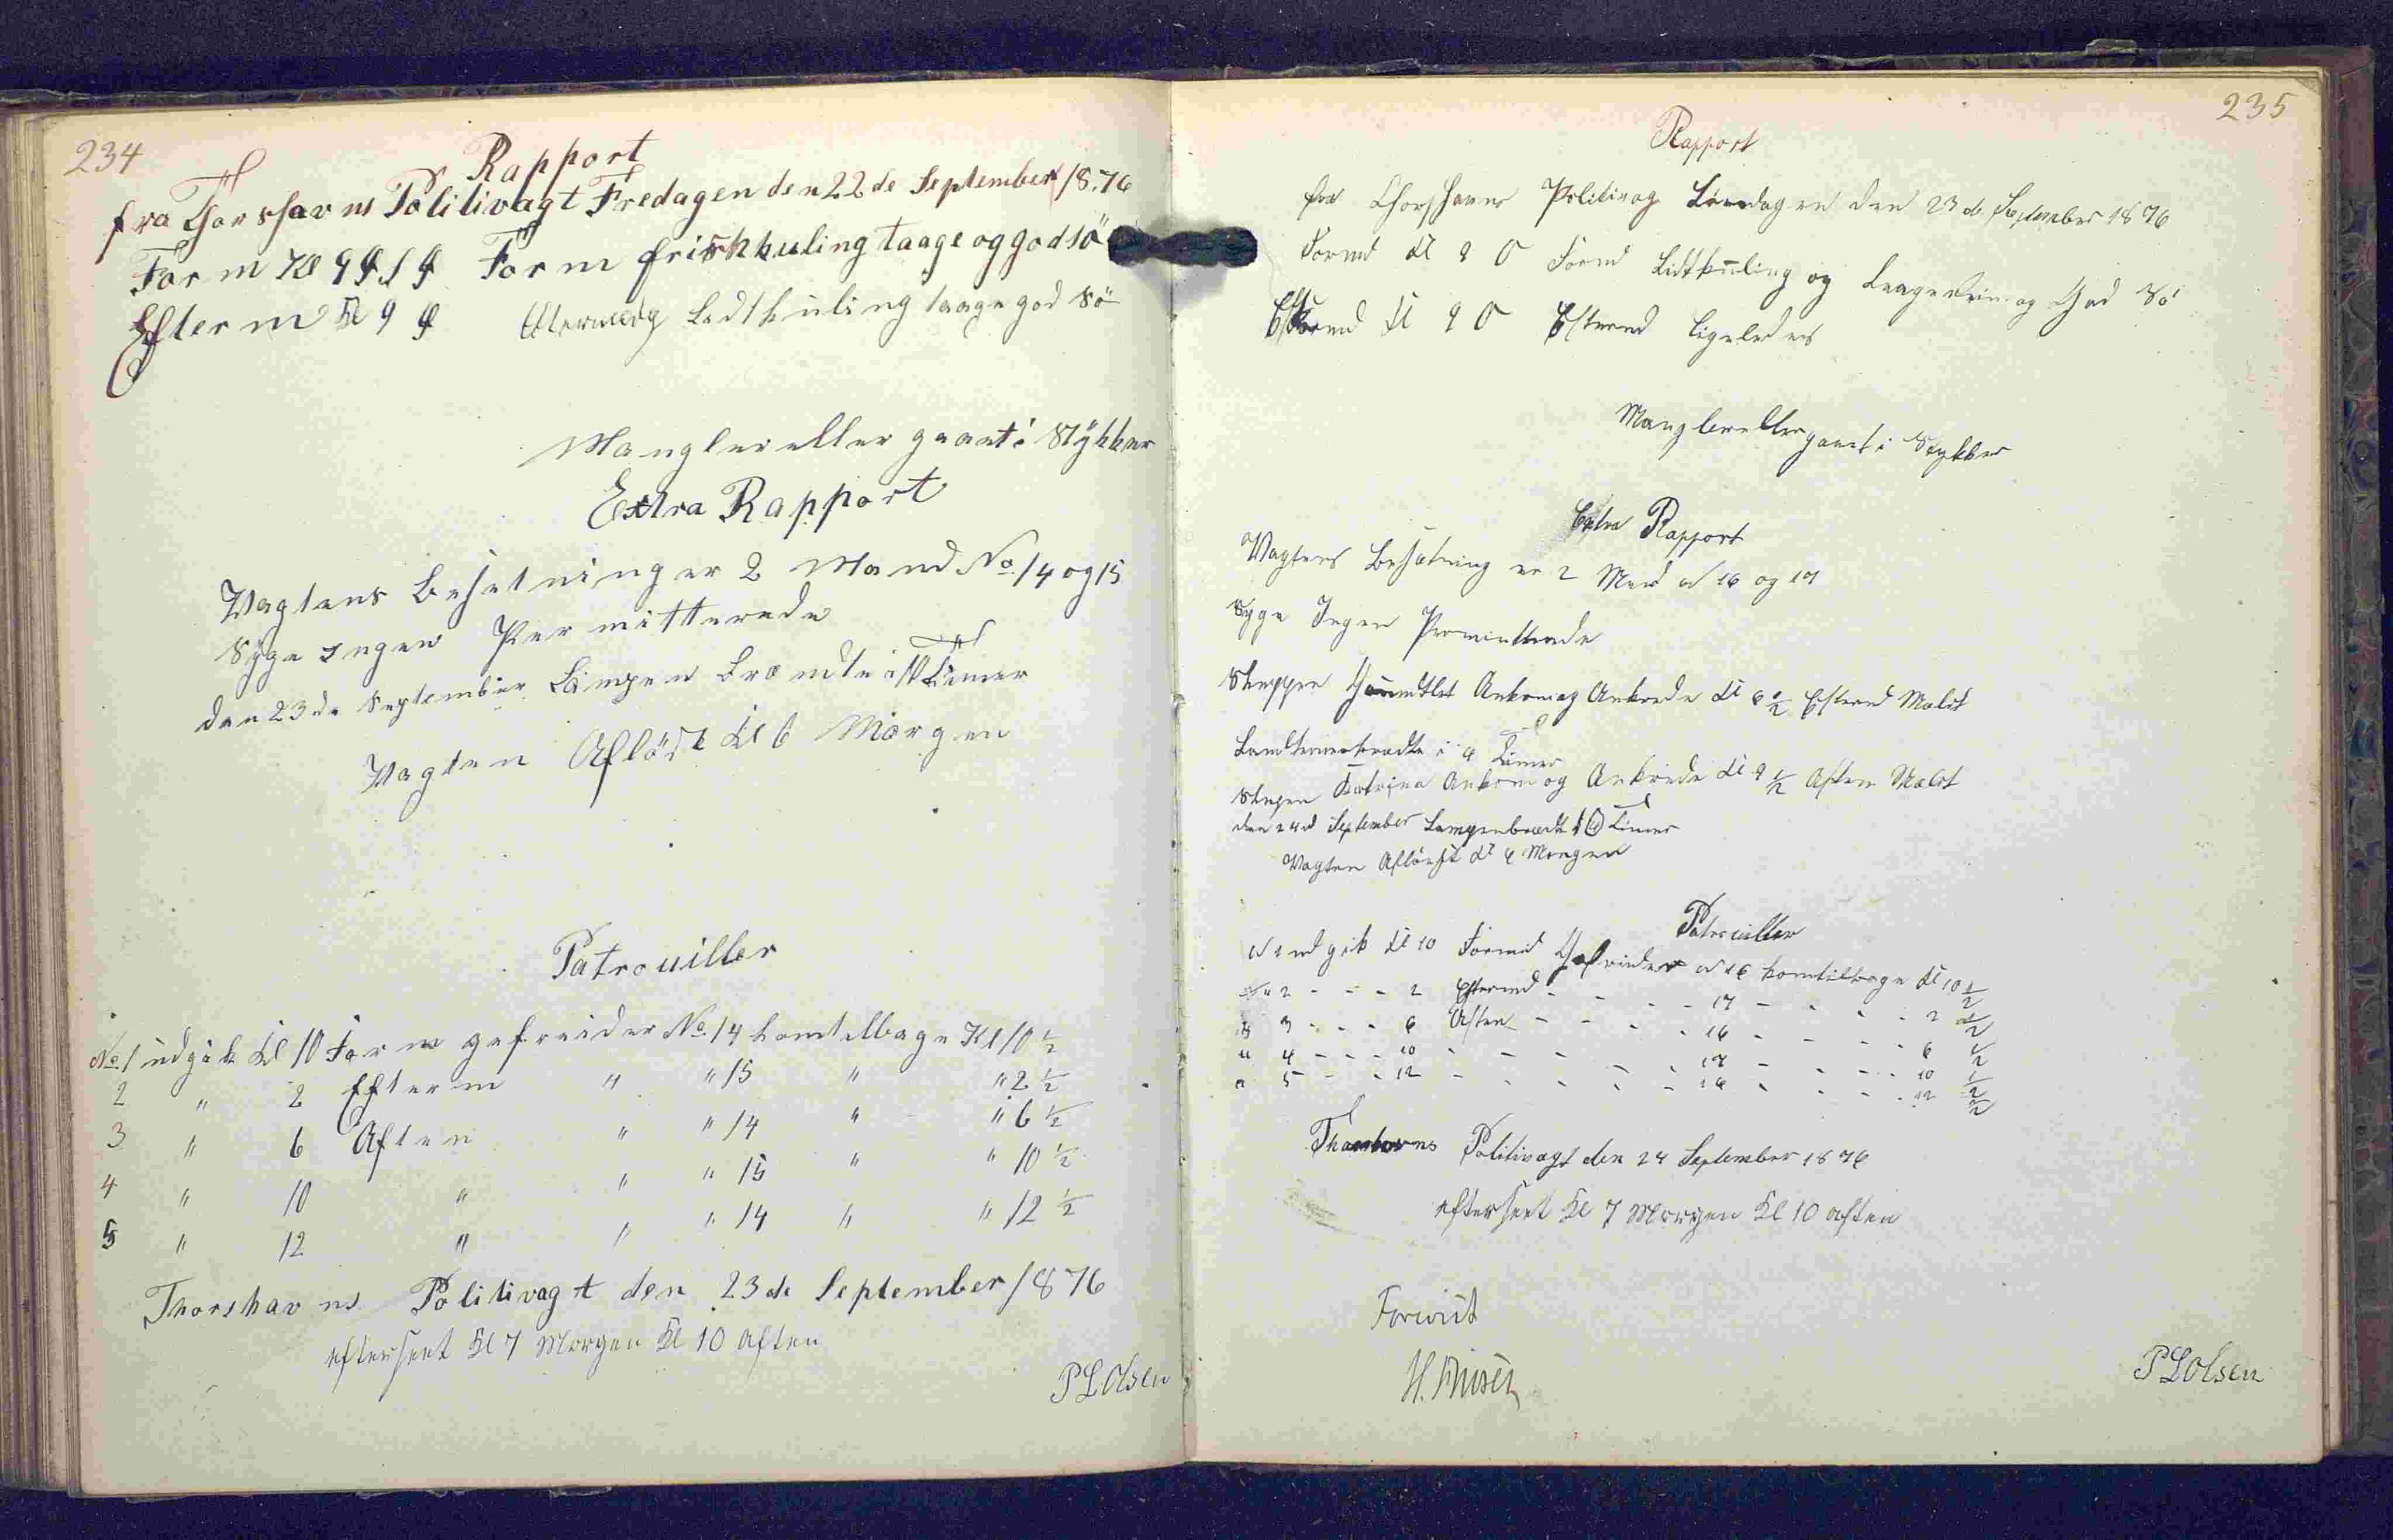 234
Rapport
fra Thorshavns Politivagt Fredagen den 22de September 1876
Form Kl 9 Form friskkuling taage og god sö
Efterm Kl 9 Ledtkuling taage god sö
Mangler eller gaaet i Stÿkker
Extra Rapport
Vagtens Besetning er 2 Mand No 14 og 15
Sÿge Ingen Permitterede
den 23de September Lampen Brændte i Timer
Vagten Aflöst Kl 6 Morgen
Patrouiller
No 1 udgik Kl 10 Form gefreider No 14 komtilbage Kl 10 1/2
2 " 2 Efterm " " 15 " " 2 1/2
3 " 6 Aften " " 14 " " 6 1/2
4 " 10 " " " 15 " " 10 1/2
5 " 12 " " " 14 " " 12 1/2
Thorshavns Politivagt den 23de September 1876
efterseet Kl 7 Morgen Kl 10 aften
P L Olsen
235
Rapport
fra Thorshavns Politivag Löredagen den 23 de September 1876
Formd Kl 9 O Formd Lidtkuling og og God Sö
Eftermd Kl 9 O Eftermd ligeledes
Mangler eller gaaet i Stykker
Extra Rapport
Vagtens Besætning er 2 Mand No 16 og 17
Syge Ingen
Sluppen Ankom og Ankrede Kl 6 1/2 Eftermd Maldt
i 4 Timer
Slupen Ankom og Ankrede Kl 9 1/2 Aften Maldt
den 24d September Lampenbrændt Timer
Vagten Aflöst Kl 6 Morgen
Patrouiller
No 1 udgik Kl 10 Formd Gefreider No 16 komtilbage Kl 10 1/2
" 2 - - - 2 Eftermd - - - - 17 - - - 2 1/2
" 3 - - - 6 Aften - - - - 16 - - - 6 1/2
" 4 - - - 10 - - - - 17 - - - 10 1/2
" 5 - - - 12 - - - - 16 - - - 12 1/2
Politivagt den 24 September 1876
efterseet Kl 7 Morgen Kl 10 aften
Forevist
P L Olsen